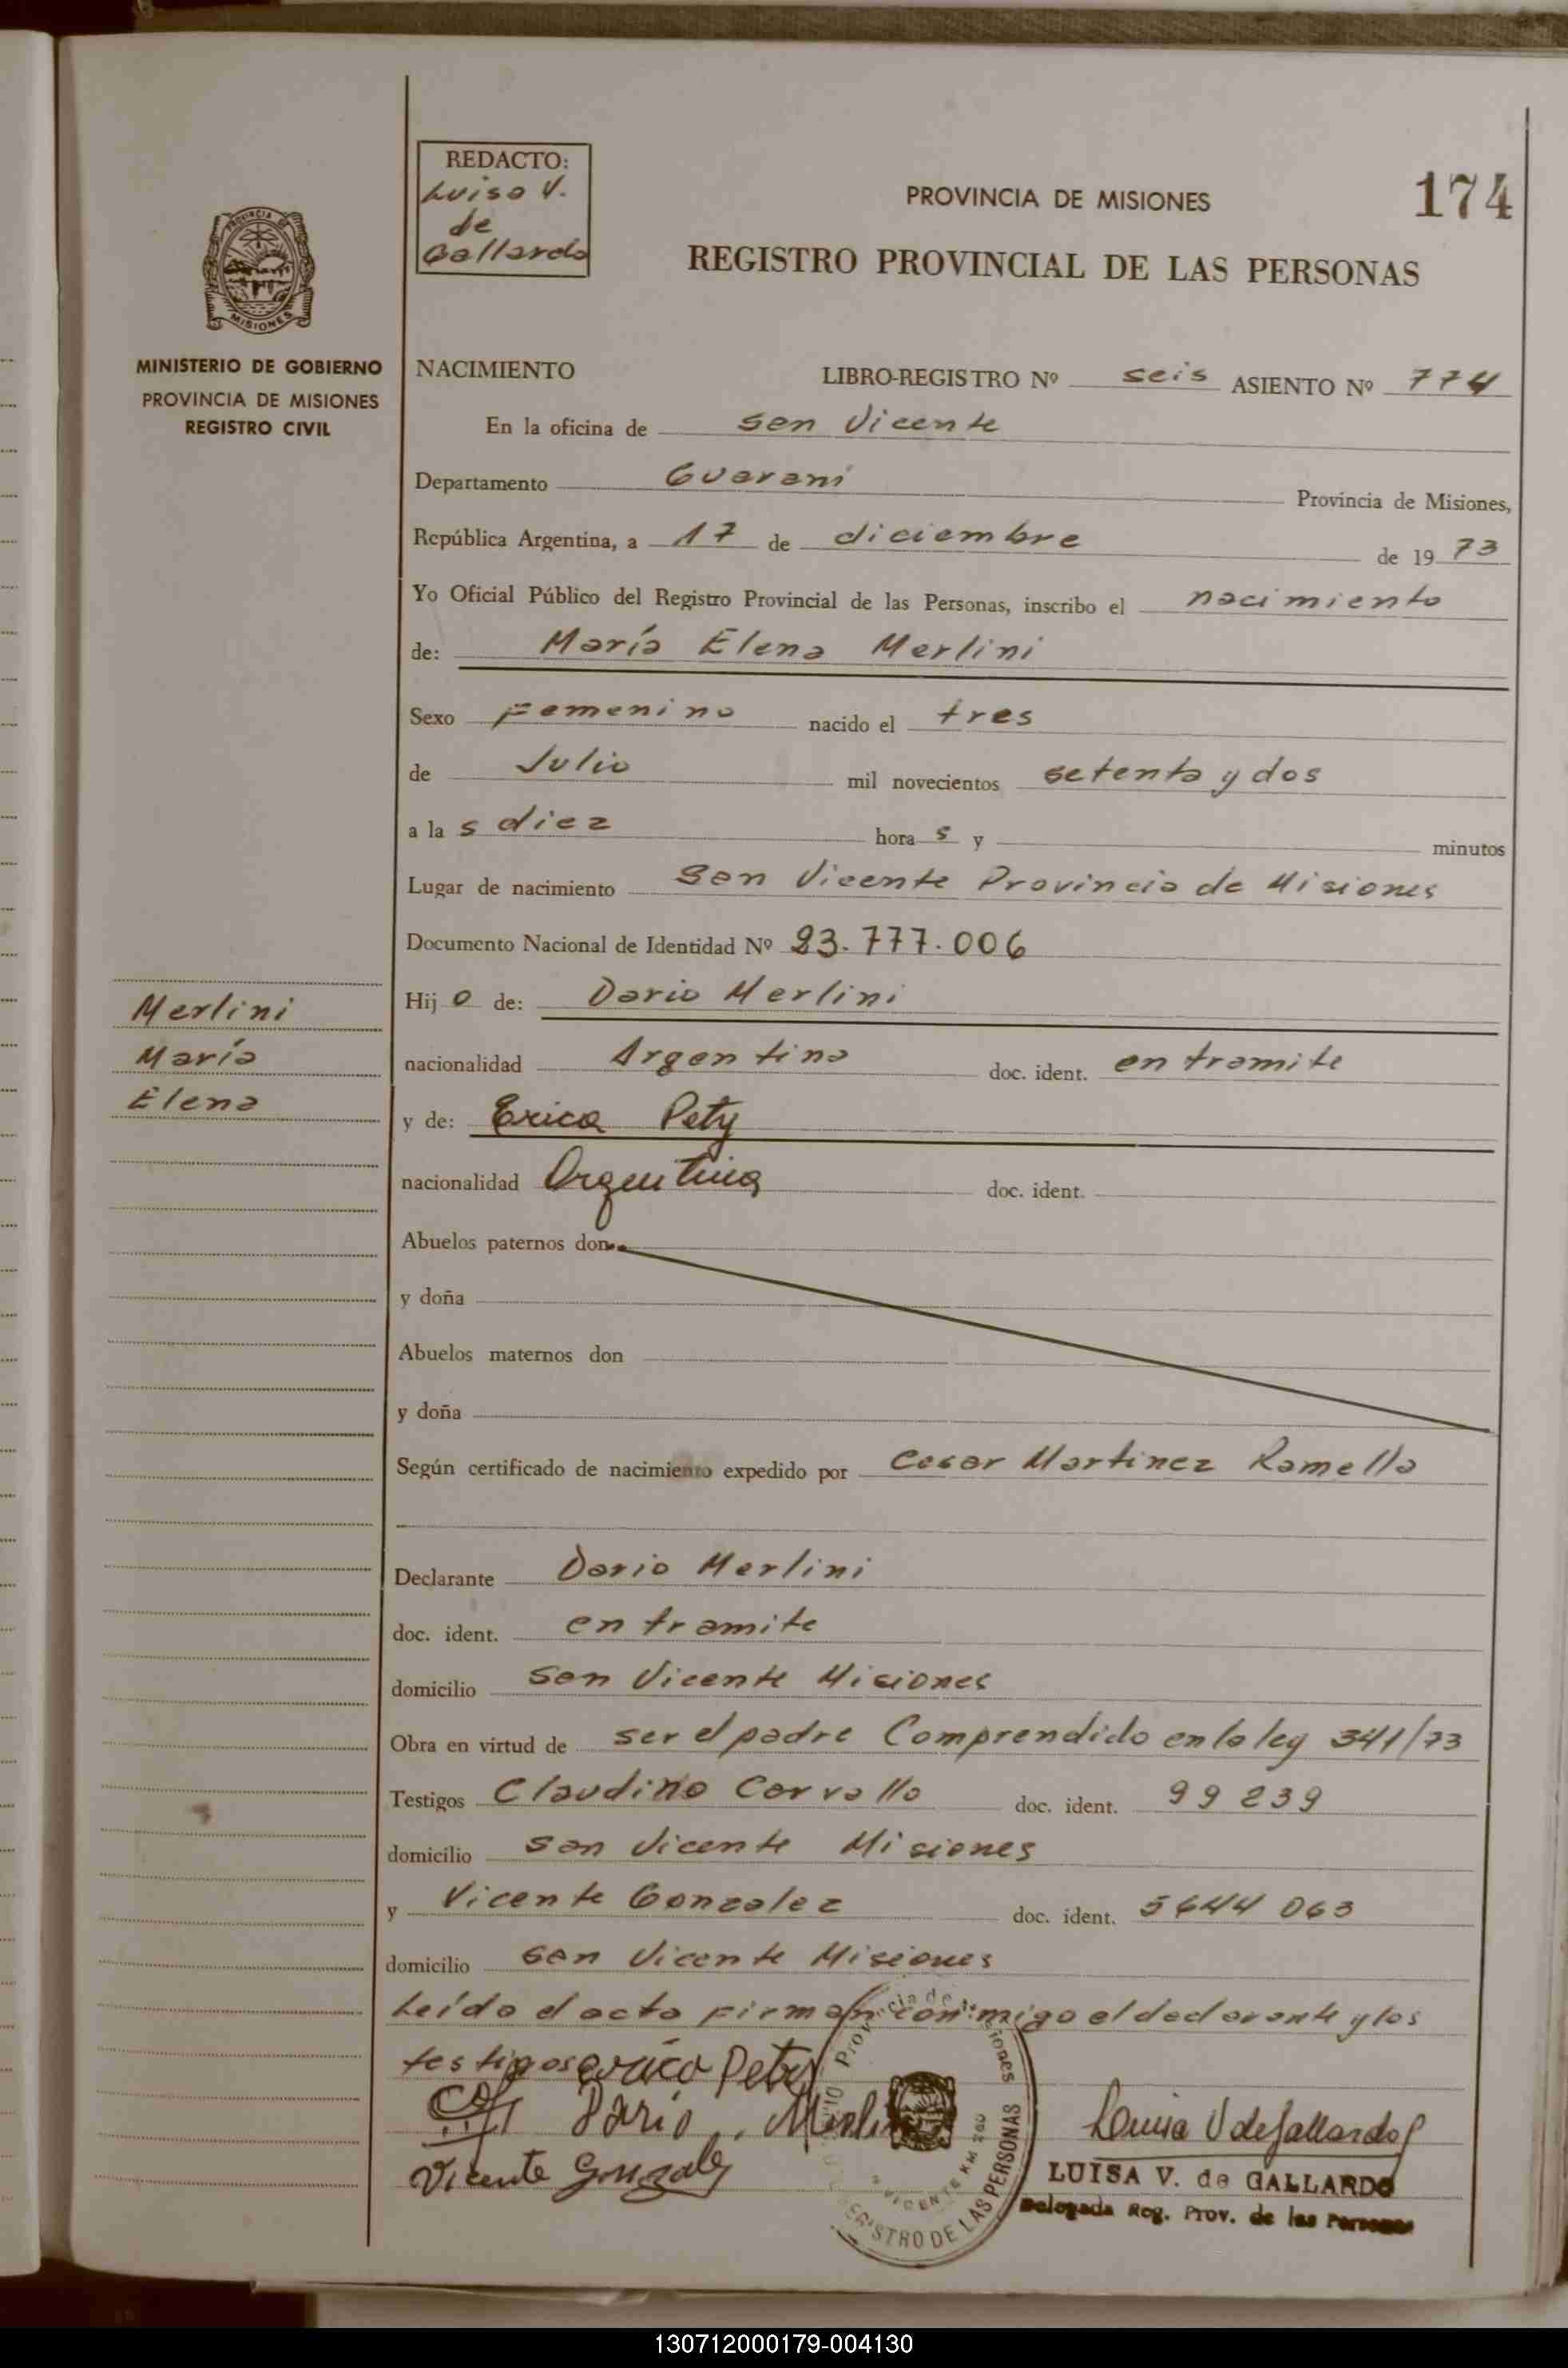 REDACTO:
Luisa V.
de
Gallardo
PROVINCIA DE MISIONES
174
REGISTRO PROVINCIAL DE LAS PERSONAS
PROVINCIA DE
MISIONES
MINISTERIO DE GOBIERNO
PROVINCIA DE MISIONES
REGISTRO CIVIL
NACIMIENTO LIBRO-REGISTRO Nº seis ASIENTO Nº 774
En la oficina de San Vicente
Departamento Guaraní Provincia de Misiones,
República Argentina, a 17 de diciembre de 1973
Yo Oficial Público del Registro Provincial de las Personas, inscribo el nacimiento
de: María Elena Merlini
Sexo Femenino nacido el tres
de Julio mil novecientos setenta y dos
a las diez horas y minutos
Lugar de nacimiento San Vicente Provincia de Misiones
Documento Nacional de Identidad Nº 23.777.006
Merlini
María
Elena
Hijo de: Dario Merlini
nacionalidad Argentina doc. ident. en tramite
y de: Erica Pety
nacionalidad Argentina doc. ident.
Abuelos paternos don
y doña
Abuelos maternos don
y doña
Según certificado de nacimiento expedido por Cesar Martinez Ramella
Declarante Dario Merlini
doc. ident. en tramite
domicilio San Vicente Misiones
Obra en virtud de ser el padre Comprendido en la ley 341/73
Testigos Claudino Carvallo doc. ident. 99239
domicilio San Vicente Misiones
y Vicente Gonzalez doc. ident. 5644063
domicilio San Vicente Misiones
Leída el acta firman conmigo el declarante y los
testigos Erica Pety
Dario Merlini
Vicente Gonzalez
Provincia de Misiones
REGISTRO DE LAS PERSONAS
VICENTE KM 260
Luisa V de Gallardo
LUISA V. de GALLARDO
Delegada Reg. Prov. de las Personas
130712000179-004130